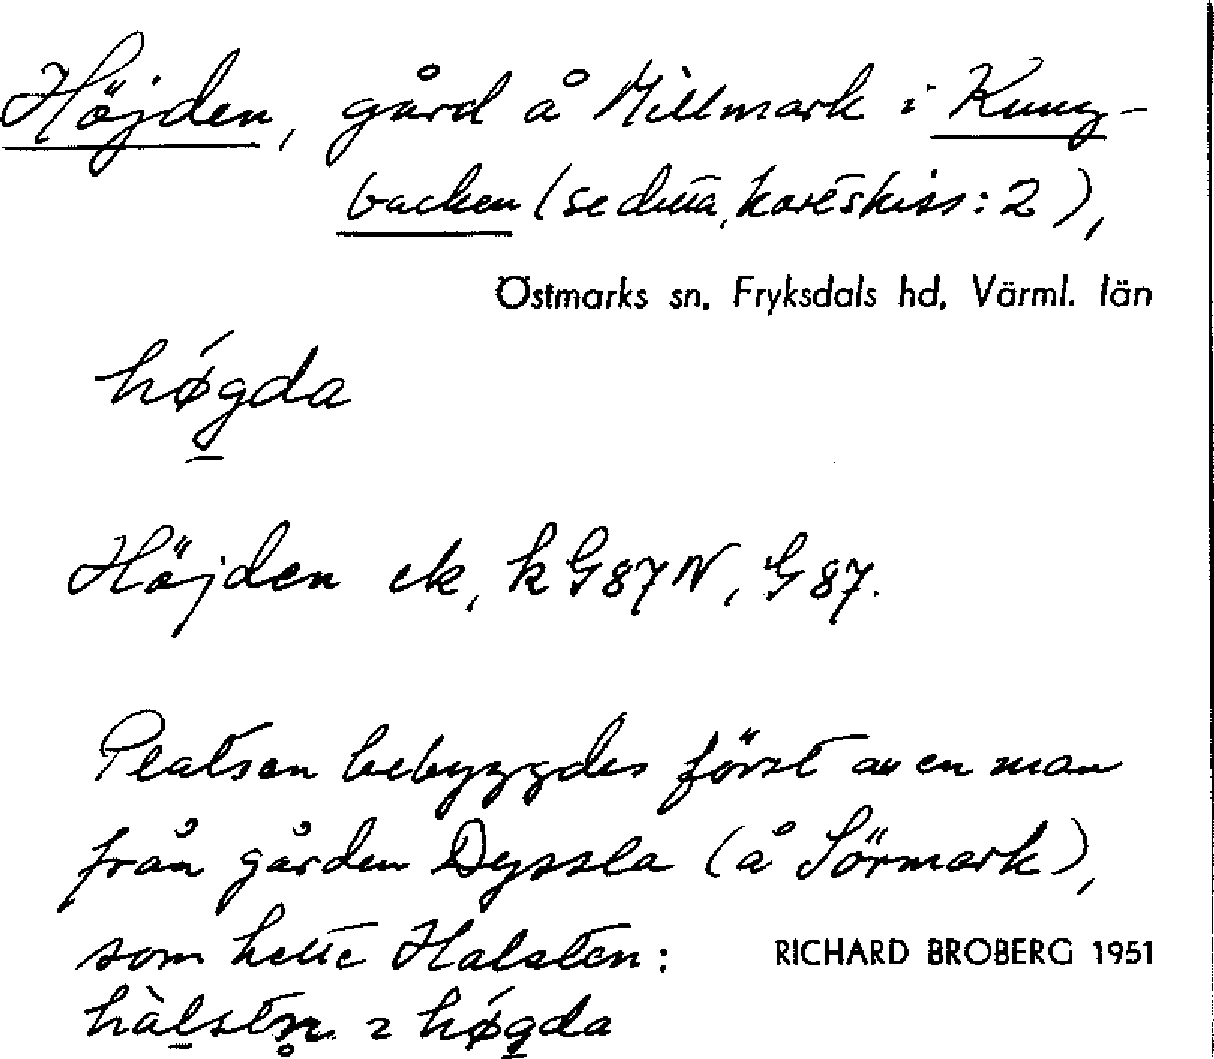 Höjden, gård å Millmark i Kung-
backen (se detta, kartskiss: 2),
Östmarks sn. Fryksdals hd. Värml. län
hǿg̱da
Höjden ek, k G87N, G87.
Platsen bebyggdes först av en man
från gården Dyssla (å Sörmark),
som hette Halsten:
RICHARD BROBERG 1951
hàḻstn̥ 2 hǿg̱da